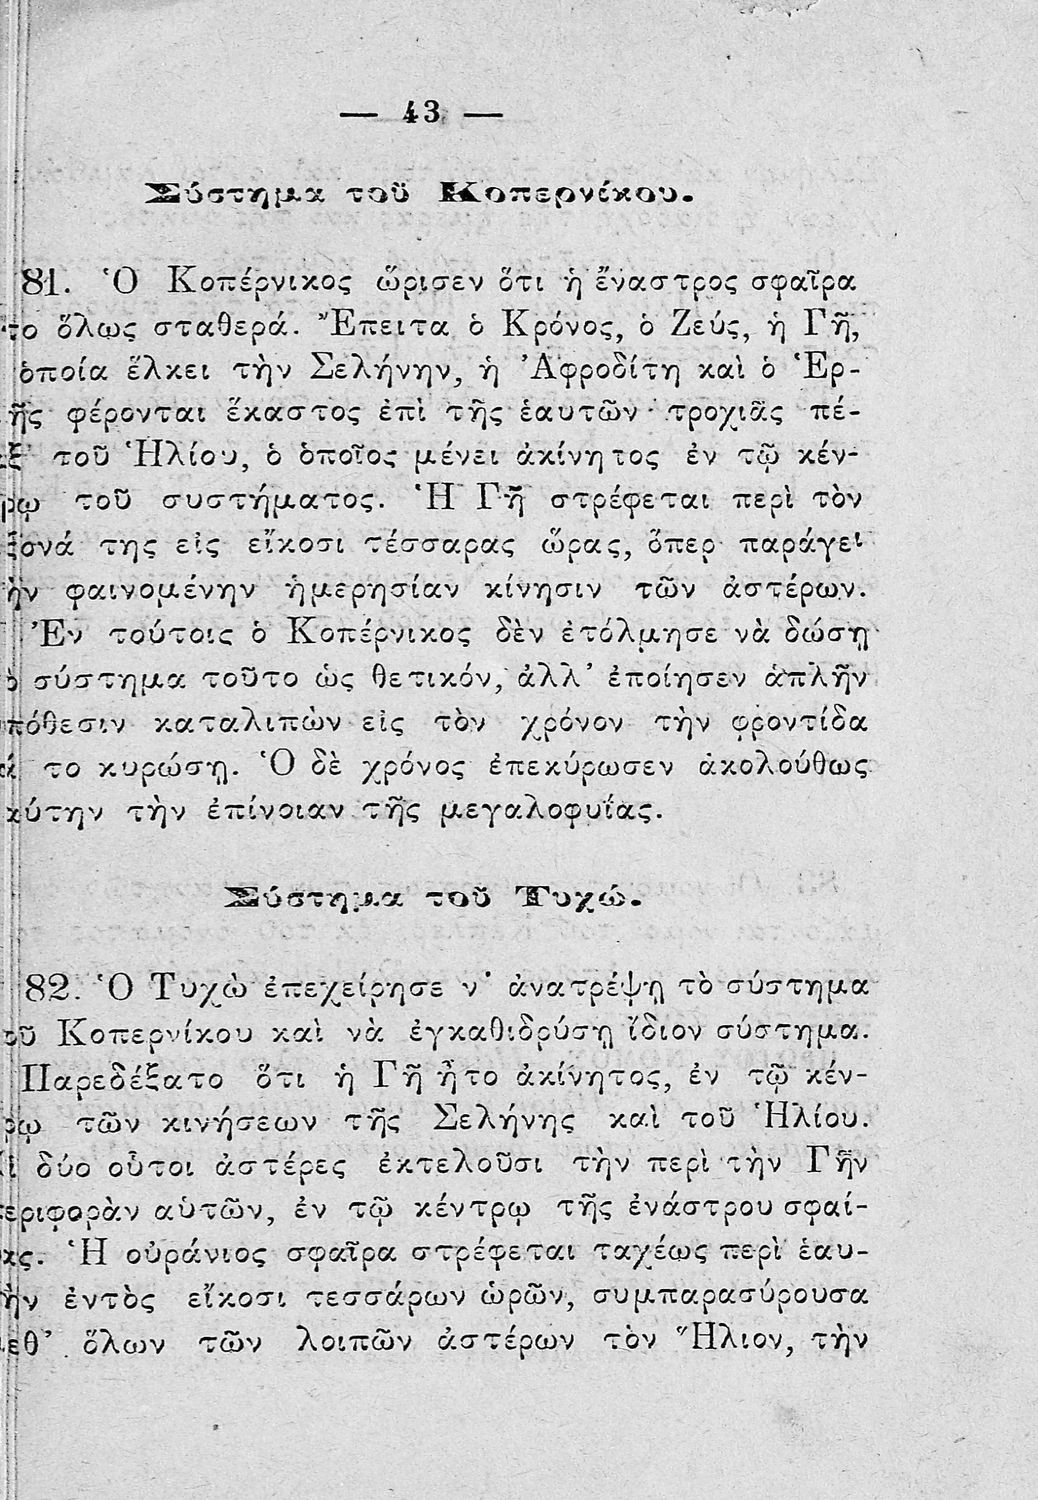 — 43 —
Σύστημα τοῦ Κοπερνίκου.
81. Ὁ Κοπέρνικος ὥρισεν ὅτι ἡ ἔναστρος σφαῖρα
το ὅλως σταθερά. Ἔπειτα ὁ Κρόνος, ὁ Ζεύς, ἡ Γῆ,
ὁποία ἕλκει τὴν Σελήνην, ἡ Ἀφροδίτη καὶ ὁ Ἑρ-
ῆς φέρονται ἕκαστος ἐπὶ τῆς ἑαυτῶν τροχιᾶς πέ-
ξ τοῦ Ἡλίου, ὁ ὁποῖος μένει ἀκίνητος ἐν τῷ κέν-
ρῳ τοῦ συστήματος. Ἡ Γῆ στρέφεται περὶ τὸν
ξονά της εἰς εἴκοσι τέσσαρας ὥρας, ὅπερ παράγει
ὴν φαινομένην ἡμερησίαν κίνησιν τῶν ἀστέρων.
Ἐν τούτοις ὁ Κοπέρνικος δὲν ἐτόλμησε νὰ δώσῃ
ὸ σύστημα τοῦτο ὡς θετικόν, ἀλλ’ ἐποίησεν ἁπλῆν
πόθεσιν καταλιπὼν εἰς τὸν χρόνον τὴν φροντίδα
ά το κυρώσῃ. Ὁ δὲ χρόνος ἐπεκύρωσεν ἀκολούθως
αύτην τὴν ἐπίνοιαν τῆς μεγαλοφυΐας.
Σύστημα τοῦ Τυχώ.
82. Ὁ Τυχὼ ἐπεχείρησε ν’ ἀνατρέψῃ τὸ σύστημα
οῦ Κοπερνίκου καὶ νὰ ἐγκαθιδρύσῃ ἴδιον σύστημα.
Παρεδέξατο ὅτι ἡ Γῆ ἦτο ἀκίνητος, ἐν τῷ κέν-
ρῳ τῶν κινήσεων τῆς Σελήνης καὶ τοῦ Ἡλίου.
ἱ δύο οὗτοι ἀστέρες ἐκτελοῦσι τὴν περὶ τὴν Γῆν
εριφορὰν αὑτῶν, ἐν τῷ κέντρῳ τῆς ἐνάστρου σφαί-
ας. Ἡ οὐράνιος σφαῖρα στρέφεται ταχέως περὶ ἑαυ-
ὴν ἐντὸς εἴκοσι τεσσάρων ὡρῶν, συμπαρασύρουσα
εθ’ ὅλων τῶν λοιπῶν ἀστέρων τὸν Ἥλιον, τὴν